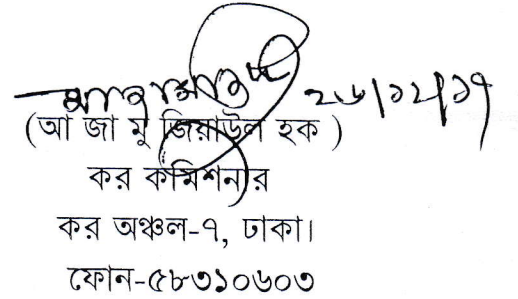 ২৬/১২/১৭
(আ জা মু জিয়াউল হক )
কর কমিশনার
কর অঞ্চল-৭, ঢাকা।
ফোন-৫৮৩১০৬০৩